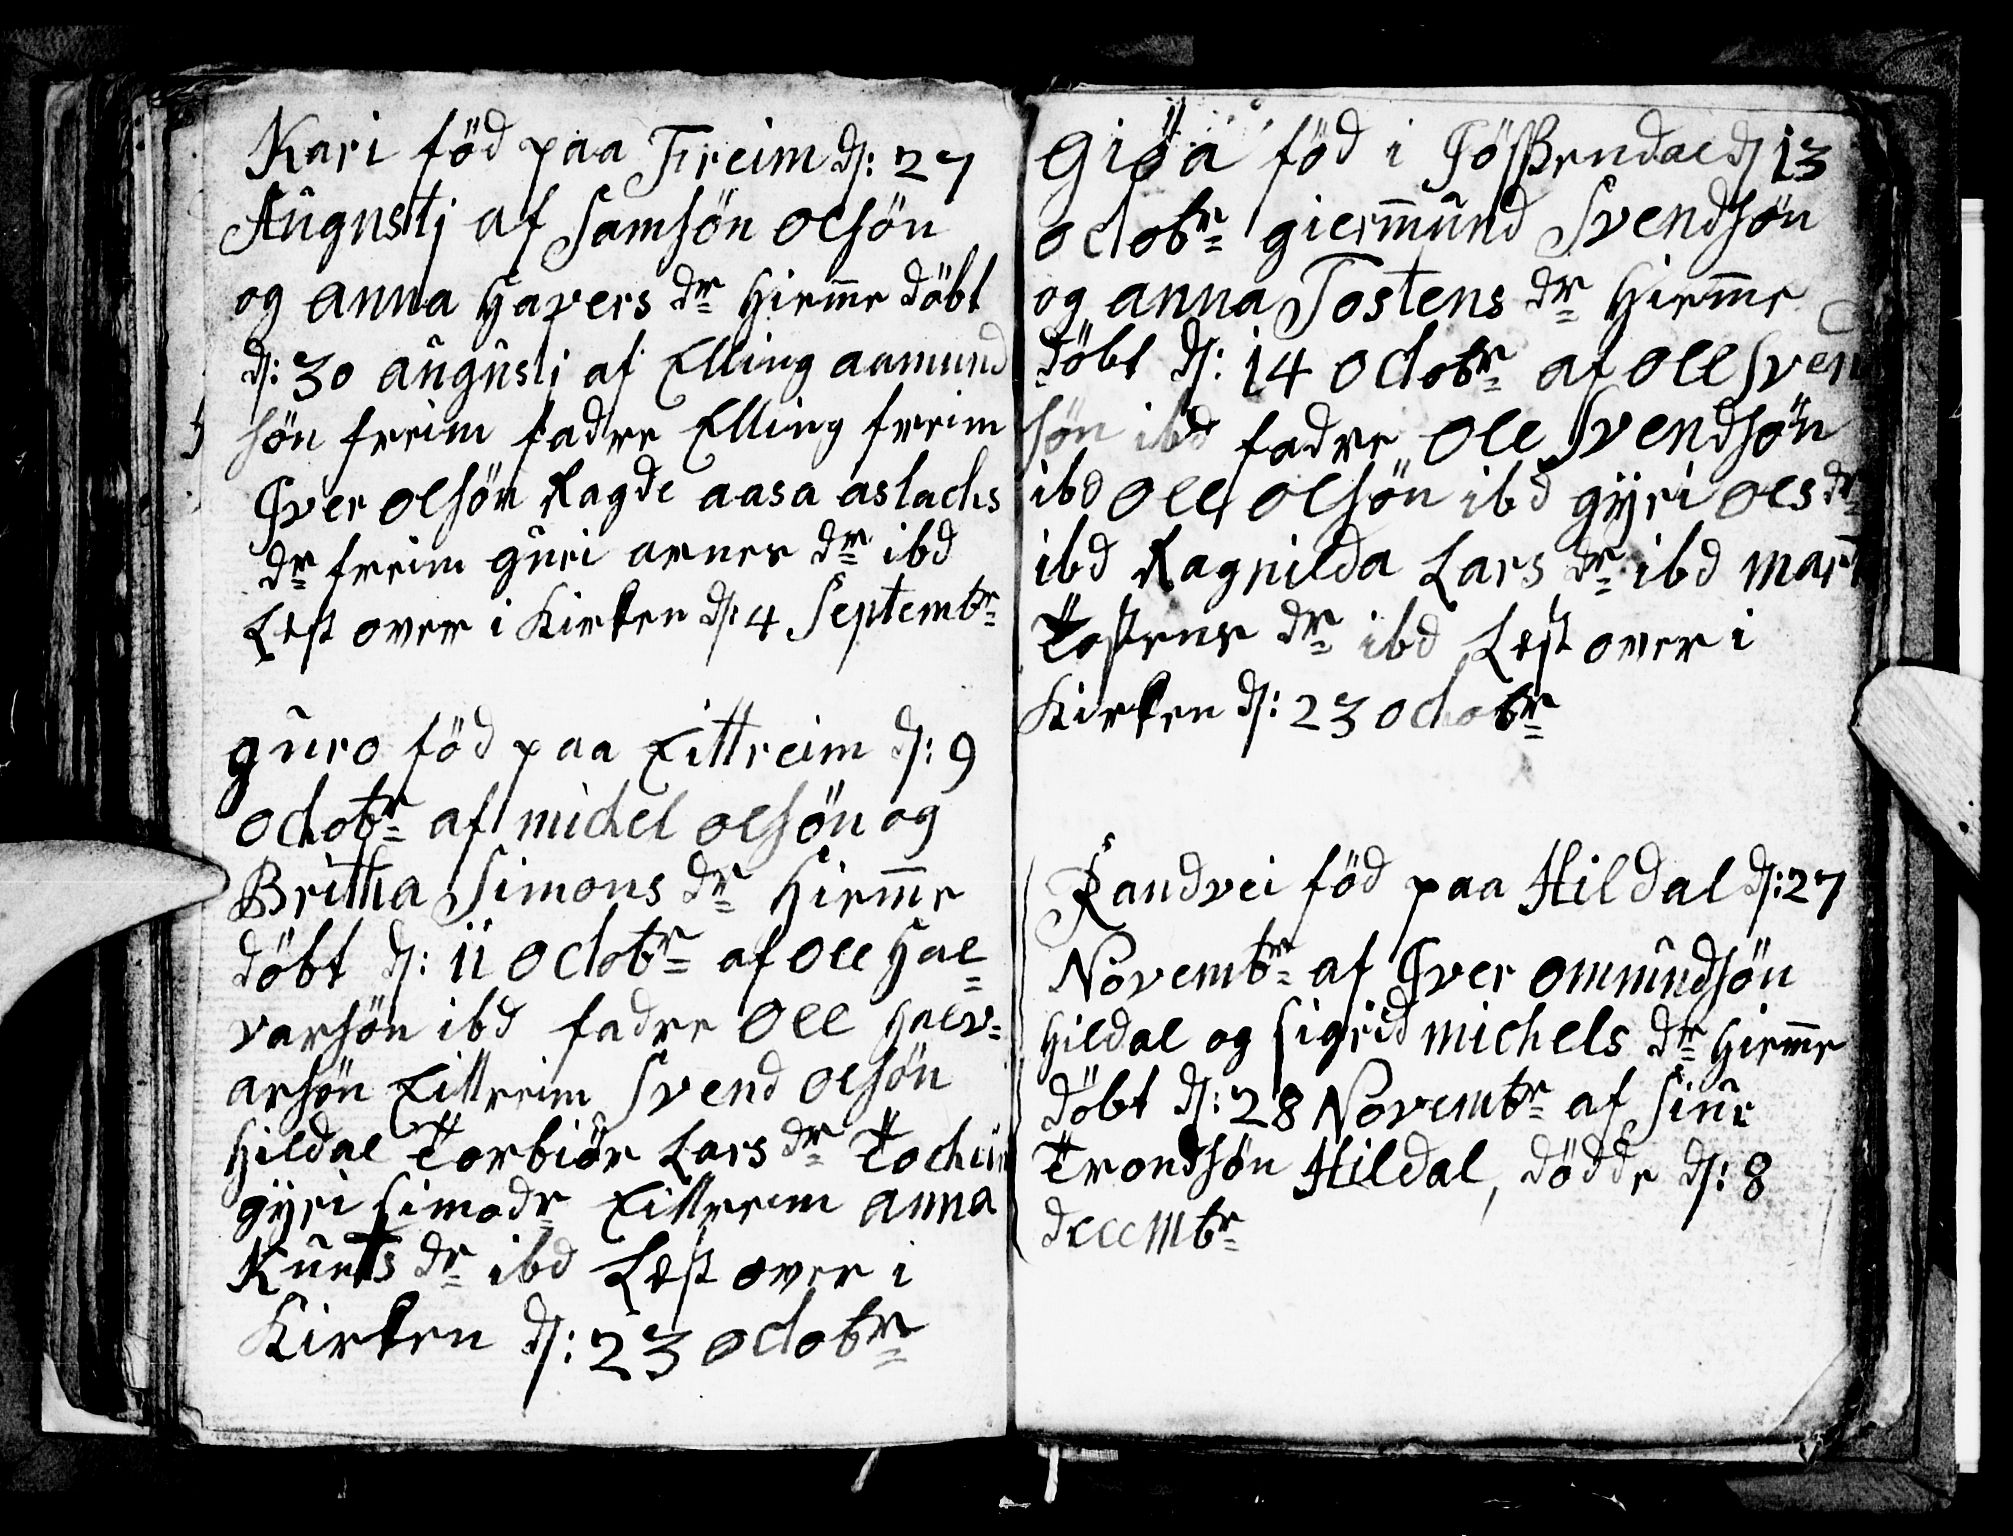 Kari föd paa Freim dſ: 27
Augustj af Samsön Olsön
og anna Havers dr hiemme döbt
dſ: 30 augustj af Elling aamund
sön freim fadre Elling freim
Iver olsön Ragde aasa aslachs
dr freim guri arnes dr ibd
Lest over i Kirken dſ: 4 Septembr
guro föd paa Eittreim dſ: 9
octobr af michel olsön og
Britha Simons dr hiemme
döbt dſ: 11 Octobr af Ole Hal=
varsön ibd fadre Ole Halv=
arsön Eittreim Svend olsön
Hildal Torbiör Lars dr
gyri simodr Eittreim anna
Knuts dr ibd Lest over i
Kirken dſ: 23 octobr
Giöa föd i Jösßendal dſ 13
octobr giermund Svendsön
og anna Tostens dr hiemme
döbt dſ: 14 Octobr af Ole Sven
sön ibd fadre Ole Svendsön
ibd Ole olsön ibd gyri ols dr
ibd Ragnilda Lars dr ibd
Tostens dr ibd Lest over i
Kirken dſ: 23 octobr
Randvei föd paa Hildal dſ: 27
Novembr af Iver omundsön
Hildal og Sigrid michels dr hiemme
döbt dſ: 28 Novembr af
Trondsön Hildal, dödde dſ: 8
decembr